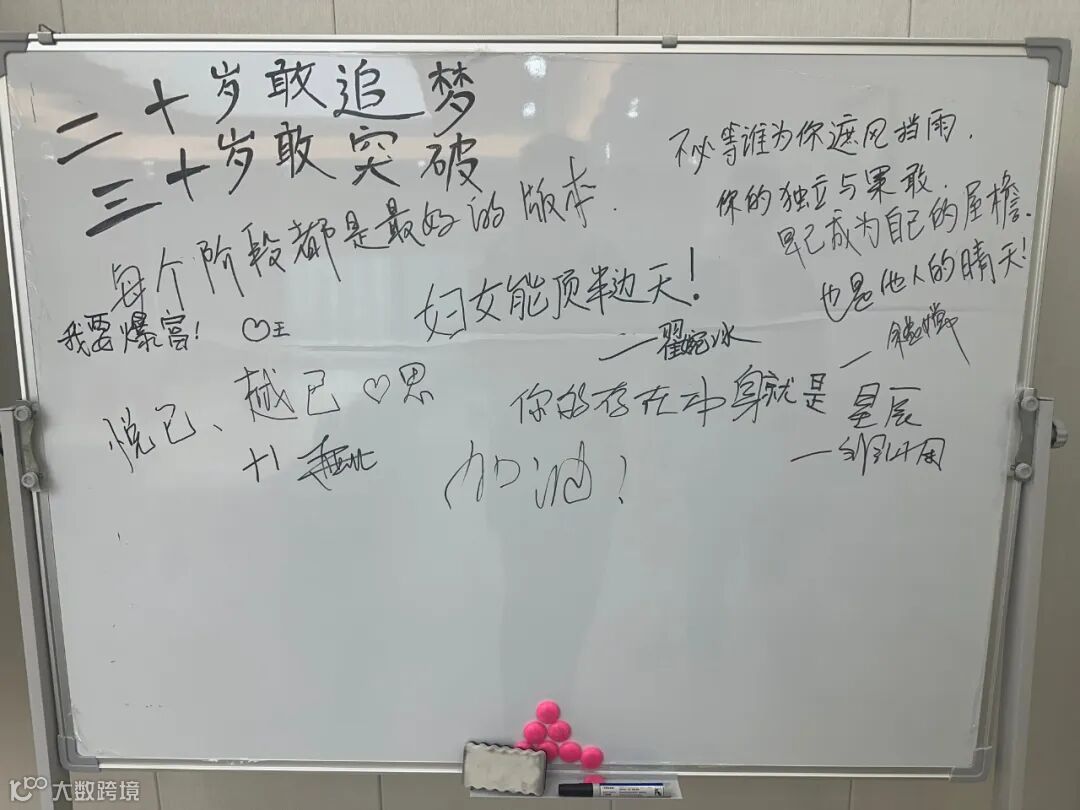 二十岁敢追梦
三十岁敢突破
每个阶段都是最好的版本.
我要爆富! ♡王
妇女能顶半边天!
—翟婉冰
不必等谁为你遮风挡雨.
你的独立与果敢.
早已成为自己的屋檐.
也是他人的晴天!
悦己、越己 ♡思
+1
你的存在本身就是星辰
加油!
大数跨境